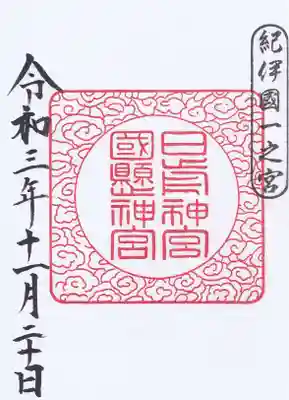 紀伊國一之宮
日前神宮
國縣神宮
令和三年十一月二十日